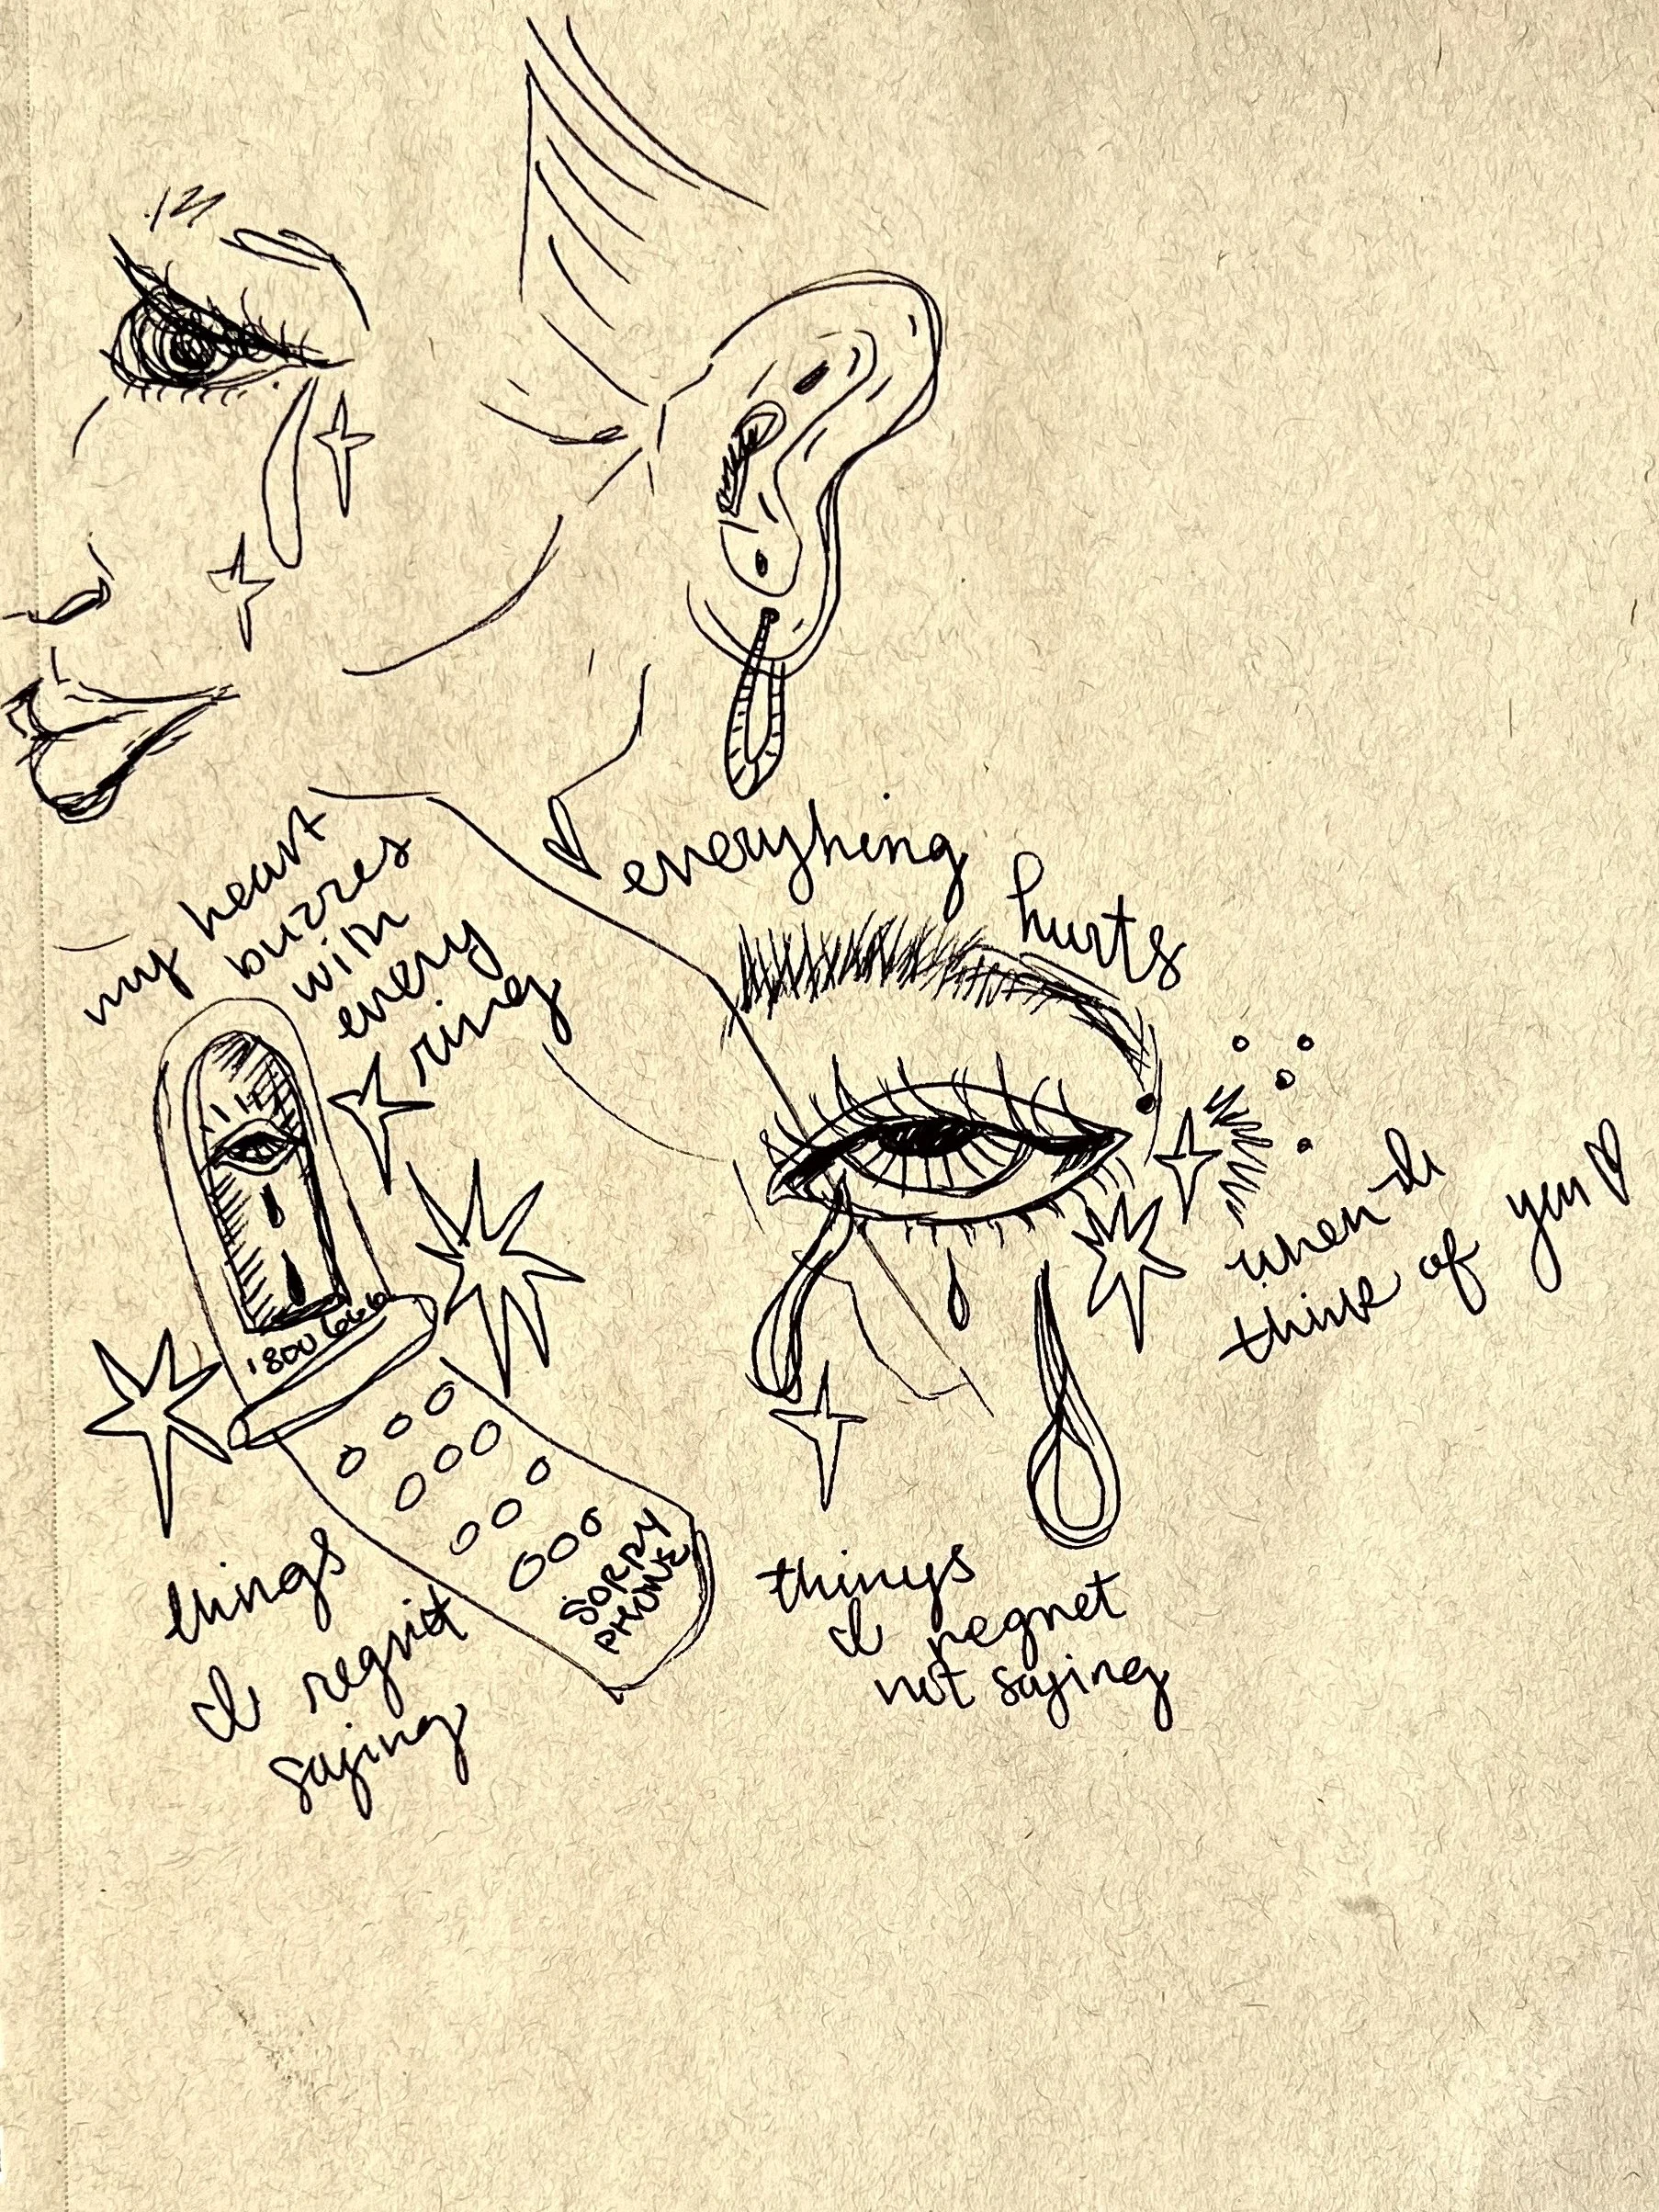 everyhing
hurts
my heart
buzzes
with
every
ring
when I
think of you♡
1800 6666
SORRY
PHONE
things
I regret
saying
things
I regret
not saying